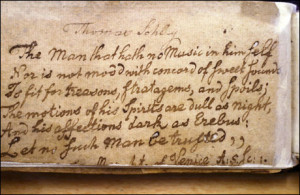 Thomas
The Man that hath no Music in him self
Nor is not mov'd with concord of sweet sounds
Is fit for treasons, stratagems, and spoils;
The motions of his Spirits are dull as night,
And his affections dark as Erebus:
Let no such Man be trusted
of Venice